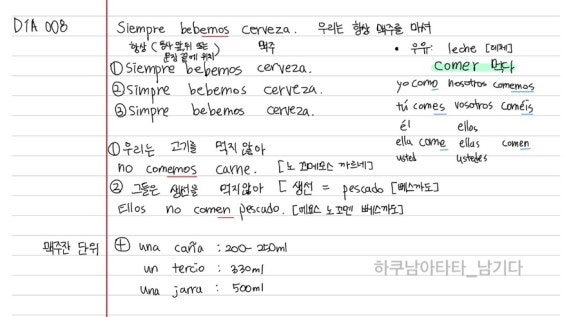 DÍA 008
Siempre bebemos cerveza. 우리는 항상 맥주를 마셔
항상 (동사 앞,뒤 또는 문장 끝에 위치) 맥주
• 우유: leche [레체]
① Siempre bebemos cerveza.
② Simpre bebemos cerveza.
③ Simpre bebemos cerveza.
comer 먹다
yo como nosotros comemos
tú comes vosotros coméis
él ellos
ella come ellas comen
usted ustedes
① 우리는 고기를 먹지 않아
no comemos carne. [노 꼬메모스 까르네]
② 그들은 생선을 먹지않아 [생선 = pescado [뻬스까도]
Ellos no comen pescado. [에요스 노 꼬멘 뻬스까도]
맥주잔 단위
⊕ una caña : 200-250ml
un tercio : 330ml
una jarra : 500ml
하쿠남아타타_남기다